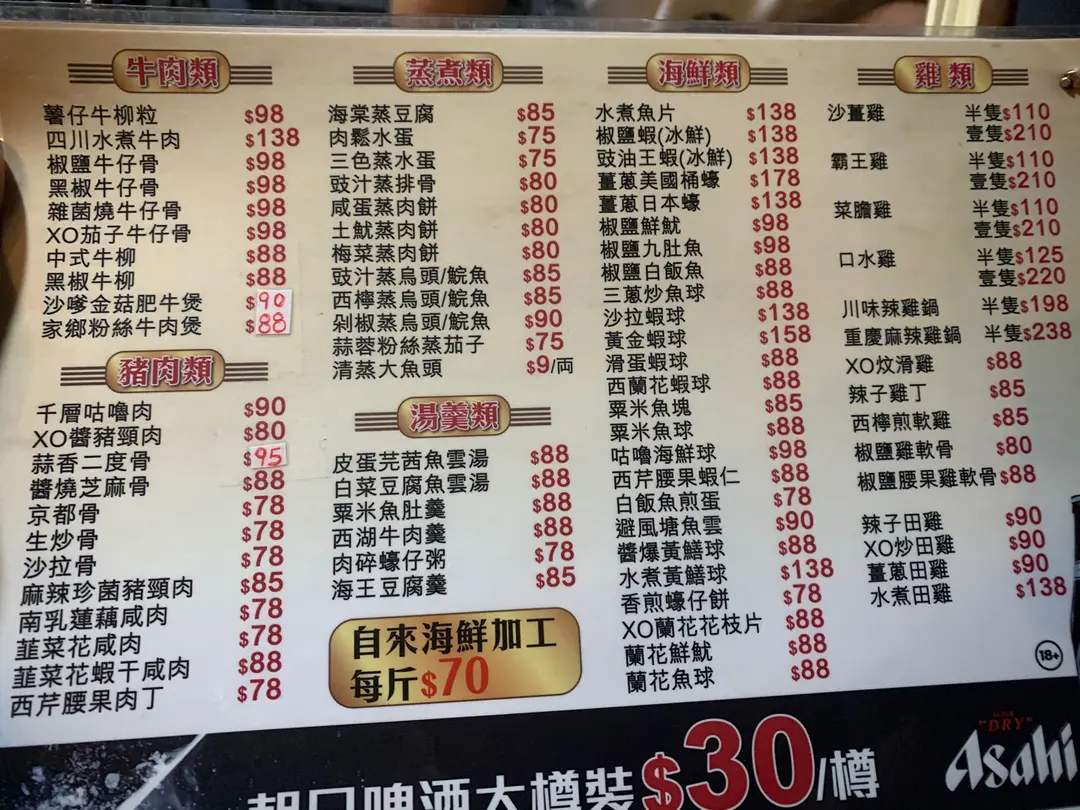 牛肉類
薯仔牛柳粒 $98
四川水煮牛肉 $138
椒鹽牛仔骨 $98
黑椒牛仔骨 $98
雜菌燒牛仔骨 $98
XO茄子牛仔骨 $98
中式牛柳 $88
黑椒牛柳 $88
沙嗲金菇肥牛煲 $90
家鄉粉絲牛肉煲 $88
豬肉類
千層咕嚕肉 $90
XO醬豬頸肉 $80
蒜香二度骨 $95
醬燒芝麻骨 $88
京都骨 $78
生炒骨 $78
沙拉骨 $78
麻辣珍菌豬頸肉 $85
南乳蓮藕咸肉 $78
韮菜花咸肉 $78
韮菜花蝦干咸肉 $88
西芹腰果肉丁 $78
蒸煮類
海棠蒸豆腐 $85
肉鬆水蛋 $75
三色蒸水蛋 $75
豉汁蒸排骨 $80
咸蛋蒸肉餅 $80
土魷蒸肉餅 $80
梅菜蒸肉餅 $80
豉汁蒸烏頭/鯇魚 $85
西檸蒸烏頭/鯇魚 $85
剁椒蒸烏頭/鯇魚 $90
蒜蓉粉絲蒸茄子 $75
清蒸大魚頭 $9/両
湯羹類
皮蛋芫茜魚雲湯 $88
白菜豆腐魚雲湯 $88
粟米魚肚羹 $88
西湖牛肉羹 $88
肉碎蠔仔粥 $78
海王豆腐羹 $85
自來海鮮加工
每斤$70
海鮮類
水煮魚片 $138
椒鹽蝦(冰鮮) $138
豉油王蝦(冰鮮) $138
薑蔥美國桶蠔 $178
薑蔥日本蠔 $138
椒鹽鮮魷 $98
椒鹽九肚魚 $98
椒鹽白飯魚 $88
三蔥炒魚球 $88
沙拉蝦球 $138
黃金蝦球 $158
滑蛋蝦球 $88
西蘭花蝦球 $88
粟米魚塊 $85
粟米魚球 $88
咕嚕海鮮球 $98
西芹腰果蝦仁 $88
白飯魚煎蛋 $78
避風塘魚雲 $90
醬爆黃鱔球 $88
水煮黃鱔球 $138
香煎蠔仔餅 $78
XO蘭花花枝片 $88
蘭花鮮魷 $88
蘭花魚球 $88
雞類
沙薑雞 半隻$110
壹隻$210
霸王雞 半隻$110
壹隻$210
菜膽雞 半隻$110
壹隻$210
口水雞 半隻$125
壹隻$220
川味辣雞鍋 半隻$198
重慶麻辣雞鍋 半隻$238
XO炆滑雞 $88
辣子雞丁 $85
西檸煎軟雞 $85
椒鹽雞軟骨 $80
椒鹽腰果雞軟骨 $88
辣子田雞 $90
XO炒田雞 $90
薑蔥田雞 $90
水煮田雞 $138
18+
朝日啤酒大樽裝$30/樽
SUPER
"DRY"
Asahi